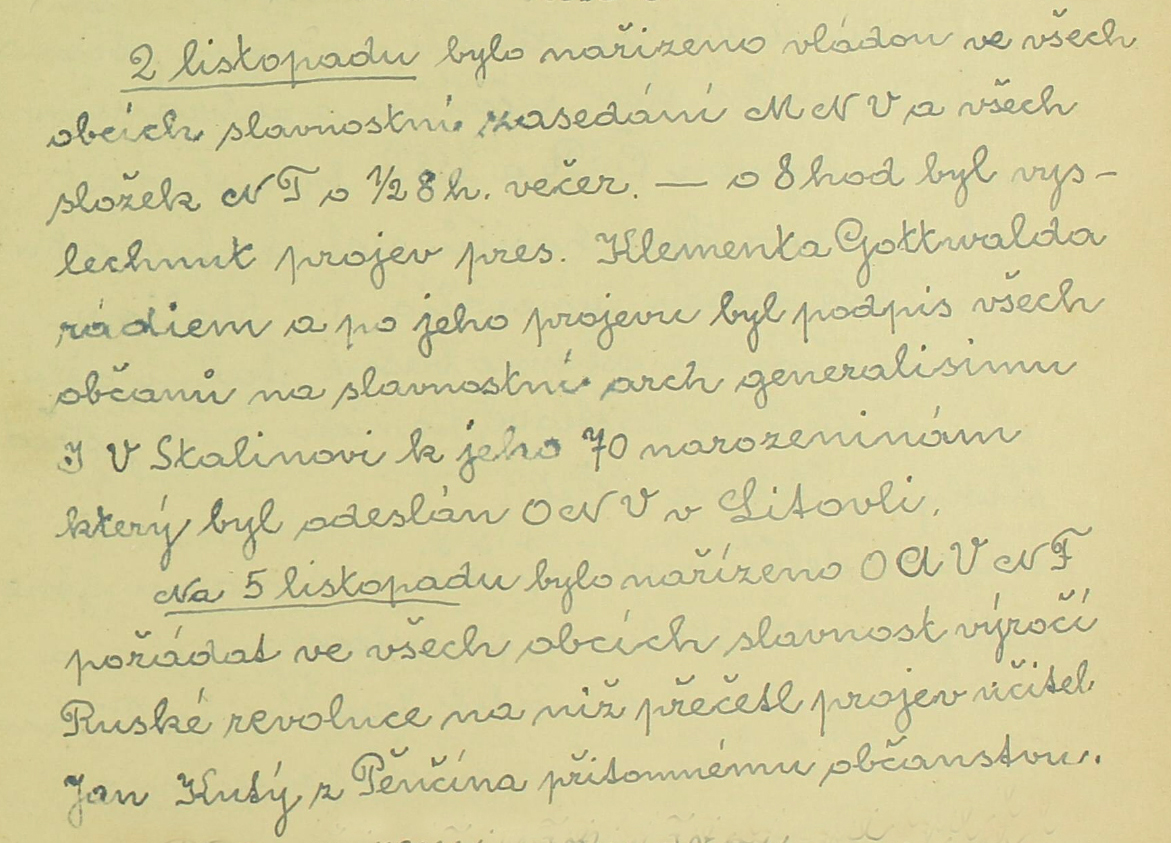 2 listopadu bylo nařizeno vládou ve všech
obcích slavnostní zasedání MNV a všech
složek NF o 1/2 8 h. večer. — o 8 hod byl vys-
lechnut projev pres. Klementa Gottwalda
rádiem a po jeho projevu byl podpis všech
občanů na slavnostní arch generalisimu
J V Stalinovi k jeho 70 narozeninám
který byl odeslán ONV v Litovli.
Na 5 listopadu bylo nařízeno OAV NF
pořádat ve všech obcích slavnost výročí
Ruské revoluce na niž přečetl projev učitel
Jan Kutý z Pěnčína přitomnému občanstvu.